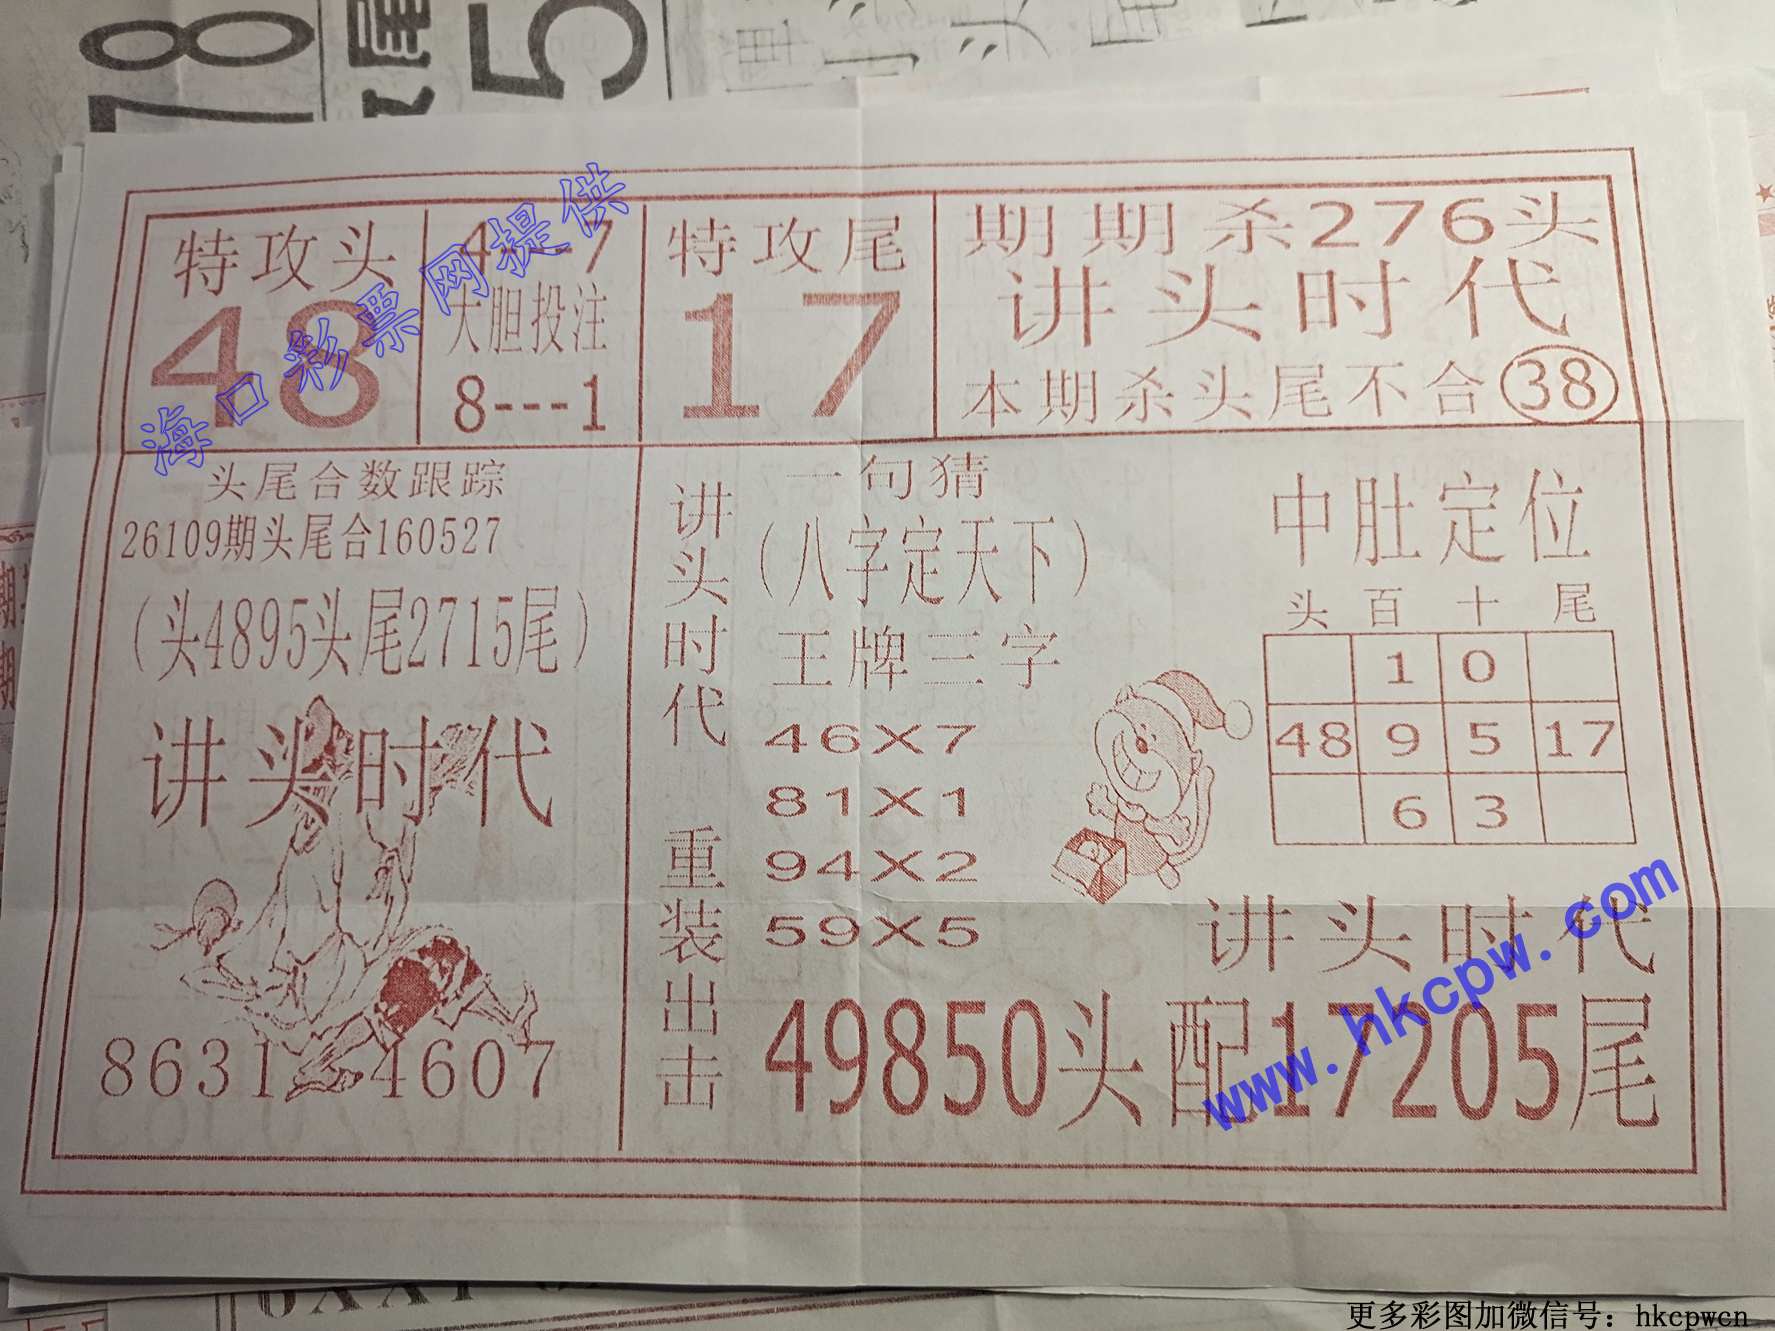 78
5
特攻头
48
4---7
大胆投注
8---1
特攻尾
17
期期杀276头
讲头时代
本期杀头尾不合38
海口彩票网提供
头尾合数跟踪
26109期头尾合160527
（头4895头尾2715尾）
讲头时代
8631 4607
讲头时代 重装出击
一句猜
（八字定天下）
王牌三字
46X7
81X1
94X2
59X5
中肚定位
头 百 十 尾
1 0
48 9 5 17
6 3
讲头时代
49850头配17205尾
www.hkcpw.com
更多彩图加微信号：hkcpwcn